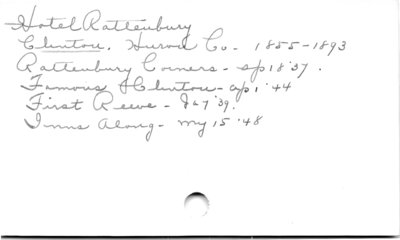 Hotel Rattenbury
Clinton, Huron Co. 1855-1893
Rattenbury Corners - sp 18 '37.
Famous Clinton - ap 1 '44
First Reeve - Ja 7 '39.
Inns Along - my 15 '48